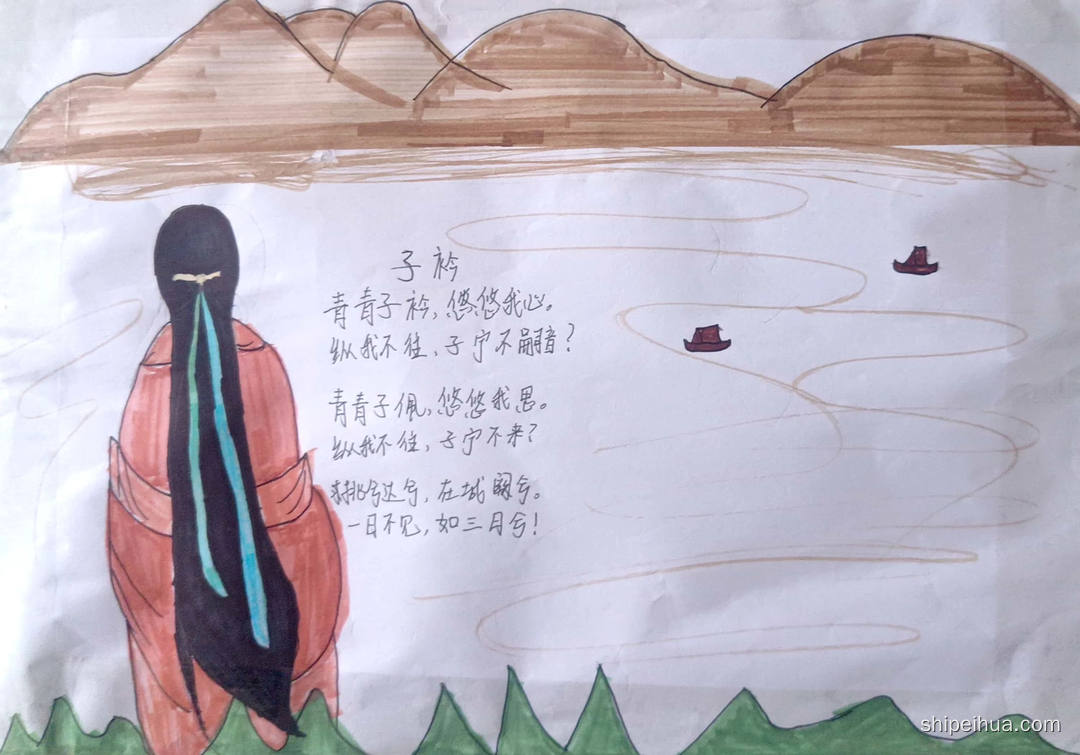 子衿
青青子衿,悠悠我心。
纵我不往,子宁不嗣音?
青青子佩,悠悠我思。
纵我不往,子宁不来?
挑兮达兮,在城阙兮。
一日不见,如三月兮!
shipeihua.com